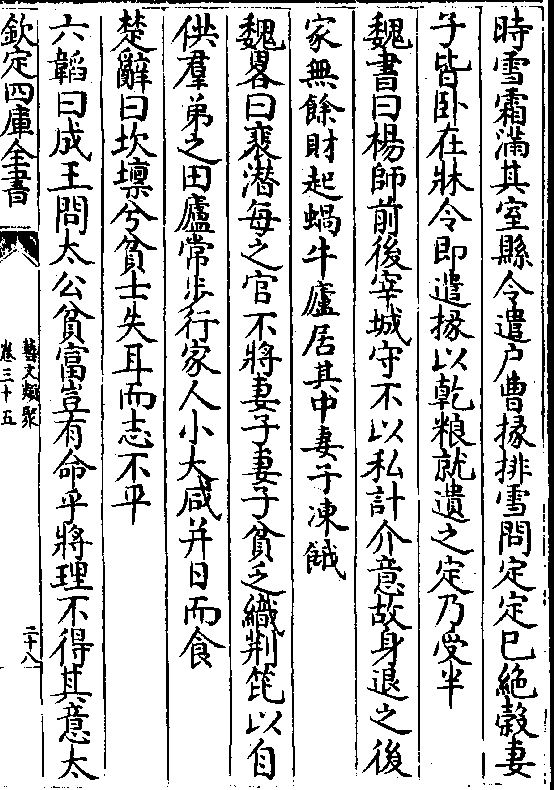 時雪霜滿其室縣令遣户曹掾排雪問定定巳絶糓妻
子皆卧在牀令即遣掾以乾粮就遺之定乃受半
魏書曰楊師前後宰城守不以私計介意故身退之後
家無餘財起蝸牛廬居其中妻子凍餓
魏畧曰裴潛每之官不將妻子妻子貧乏織荆笓以自
供羣弟之田廬常步行家人小大咸并日而食
楚辭曰坎壈兮貧士失耳而志不平
六韜曰成王問太公貧富豈有命乎將理不得其意太
欽定四庫全書
藝文類聚
卷三十五
二十八